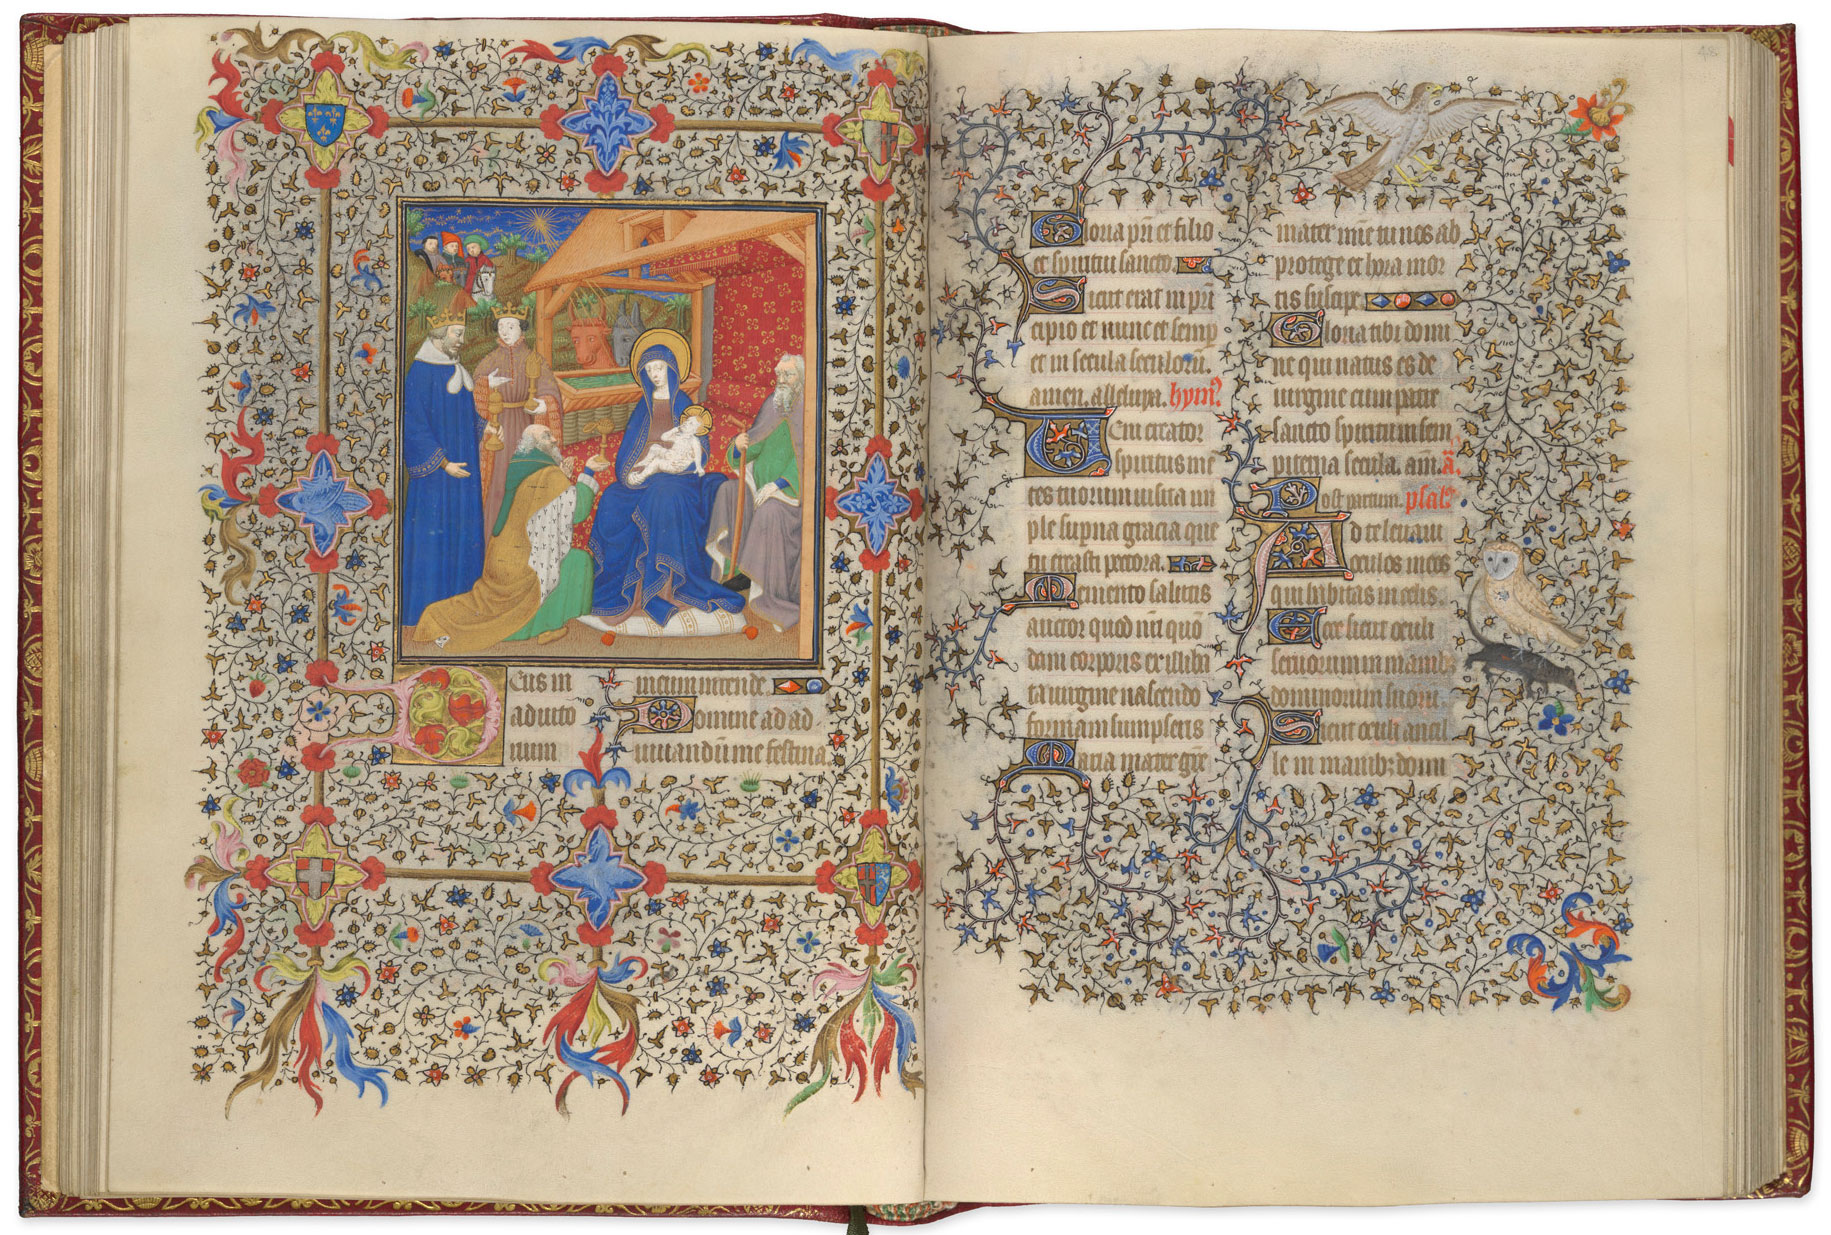 Eus in
adiuto
rium
meum intende.
Domine ad ad
iuuandū me festina
48
Gloria pr̄i et filio
et spiritui sancto.
Sicut erat in prī
cipio et nunc et semp
et in secula seculorū.
amen. alleluya. hymꝰ
Veni creator
spiritus mē
tes tuorum uisita im
ple supna gracia que
tu creasti pectora.
Memento salutis
auctor quod nr̄i quon
dam corporis ex illiba
ta uirgine nascendo
formam sumpseris
Maria mater grē
mater mīe tu nos ab
protege et hora mor
tis suscipe.
Gloria tibi domi
ne qui natus es de
uirgine cum patre
sancto spiritu in sem
piterna secula. am̄. ā.
Post partum. psalꝰ
Ad te leuaui
oculos meos
qui habitas in celis.
Ecce sicut oculi
seruorum in manibȝ
dominorum suorū
Sicut oculi ancil
le in manibȝ domi